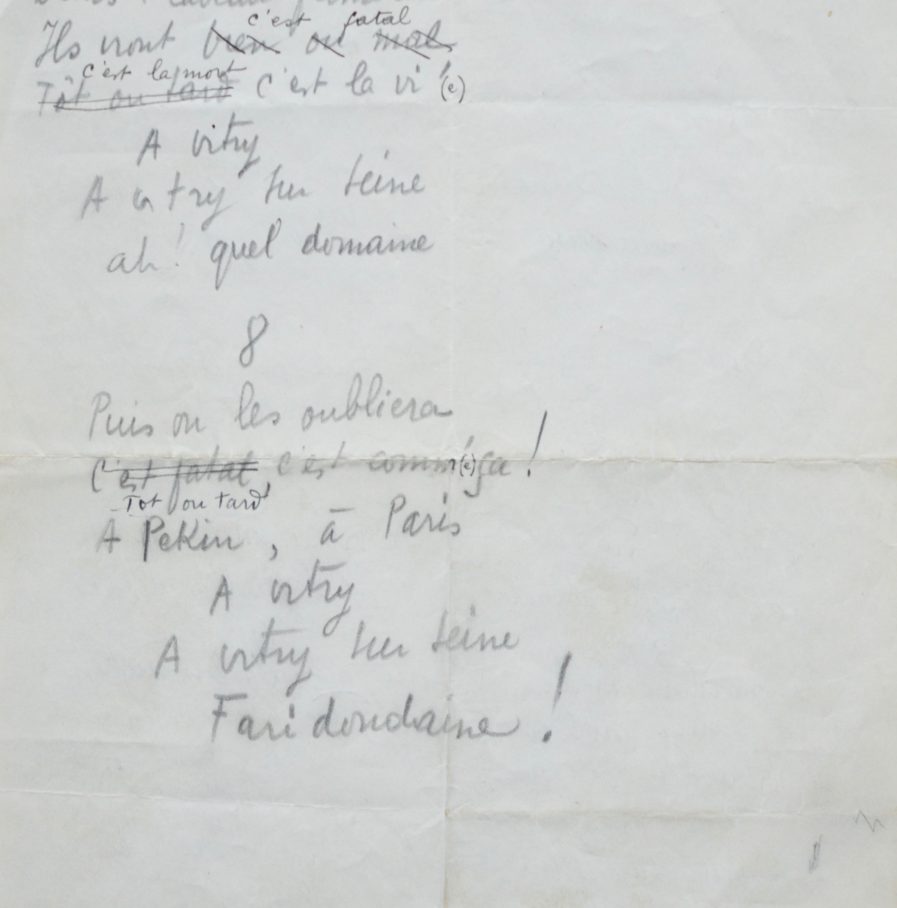 c'est fatal
Ils iront bien ou mal
c'est la mort
Tôt ou tard c'est la vi'(e)
A vitry
A vitry sur seine
ah! quel domaine
8
Puis on les oubliera
C'est fatal, c'est comm'(e) ça!
Tot ou tard
A Pekin, à Paris
A vitry
A vitry sur seine
Faridondaine!